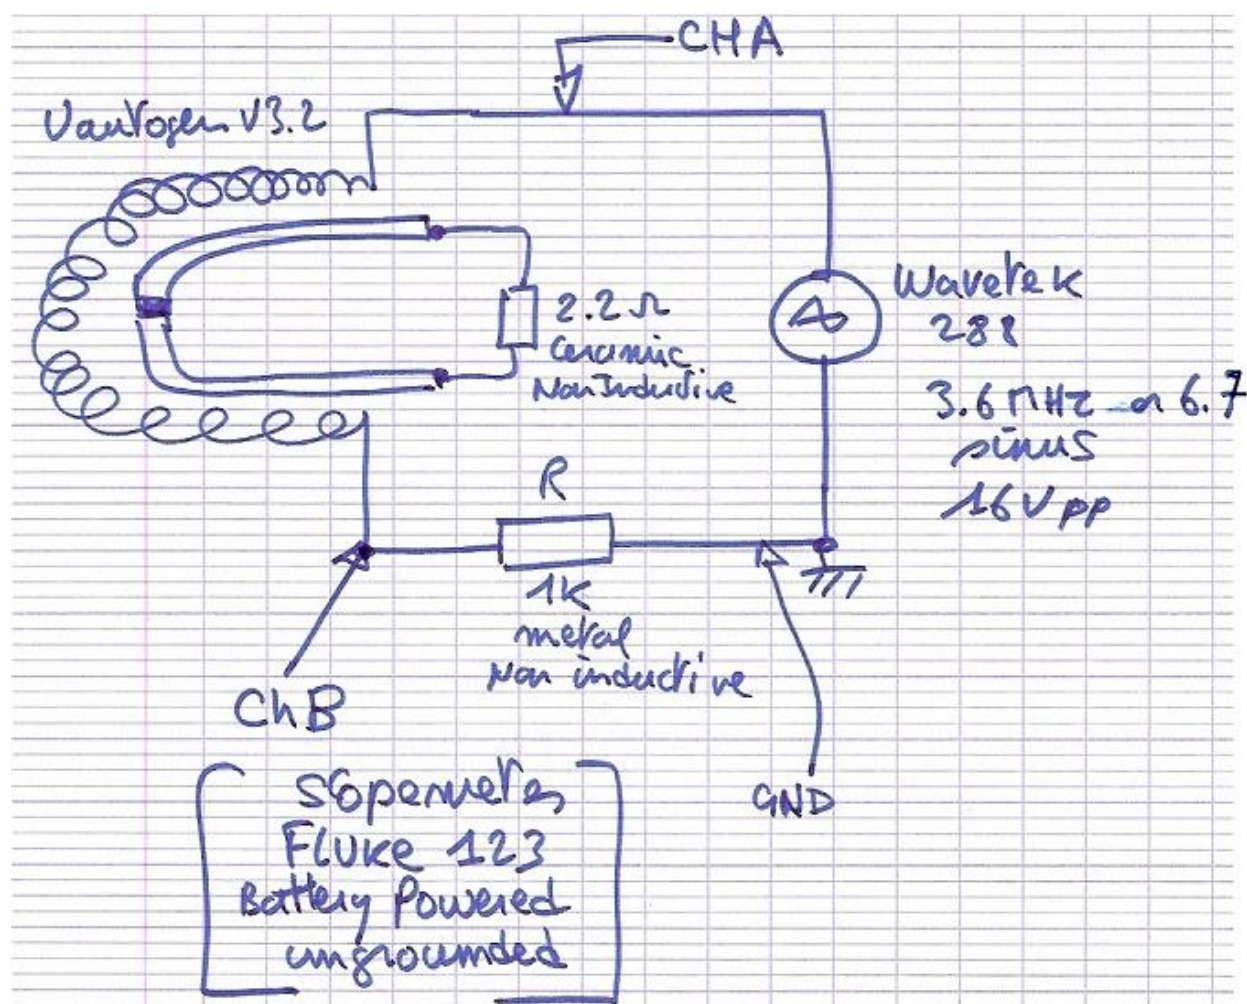 CHA
Vautogen V3.2
2.2 Ω
Ceramic
Non Inductive
Wavetek
288
3.6 MHz or 6.7
sinus
16V pp
R
1K
metal
Non inductive
ChB
GND
Scopemeter
Fluke 123
Battery Powered
ungrounded